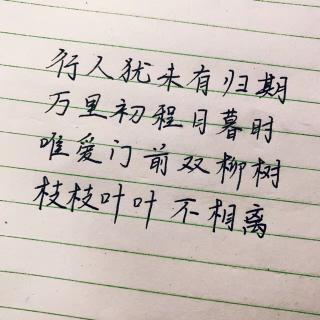 行人犹未有归期
万里初程日暮时
唯爱门前双柳树
枝枝叶叶不相离